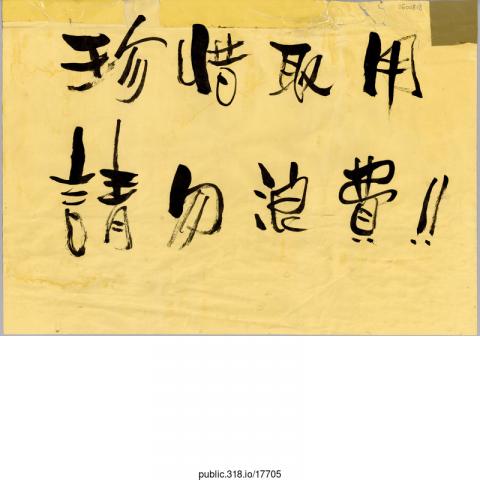 珍惜取用
請勿浪費!!
public.318.io/17705